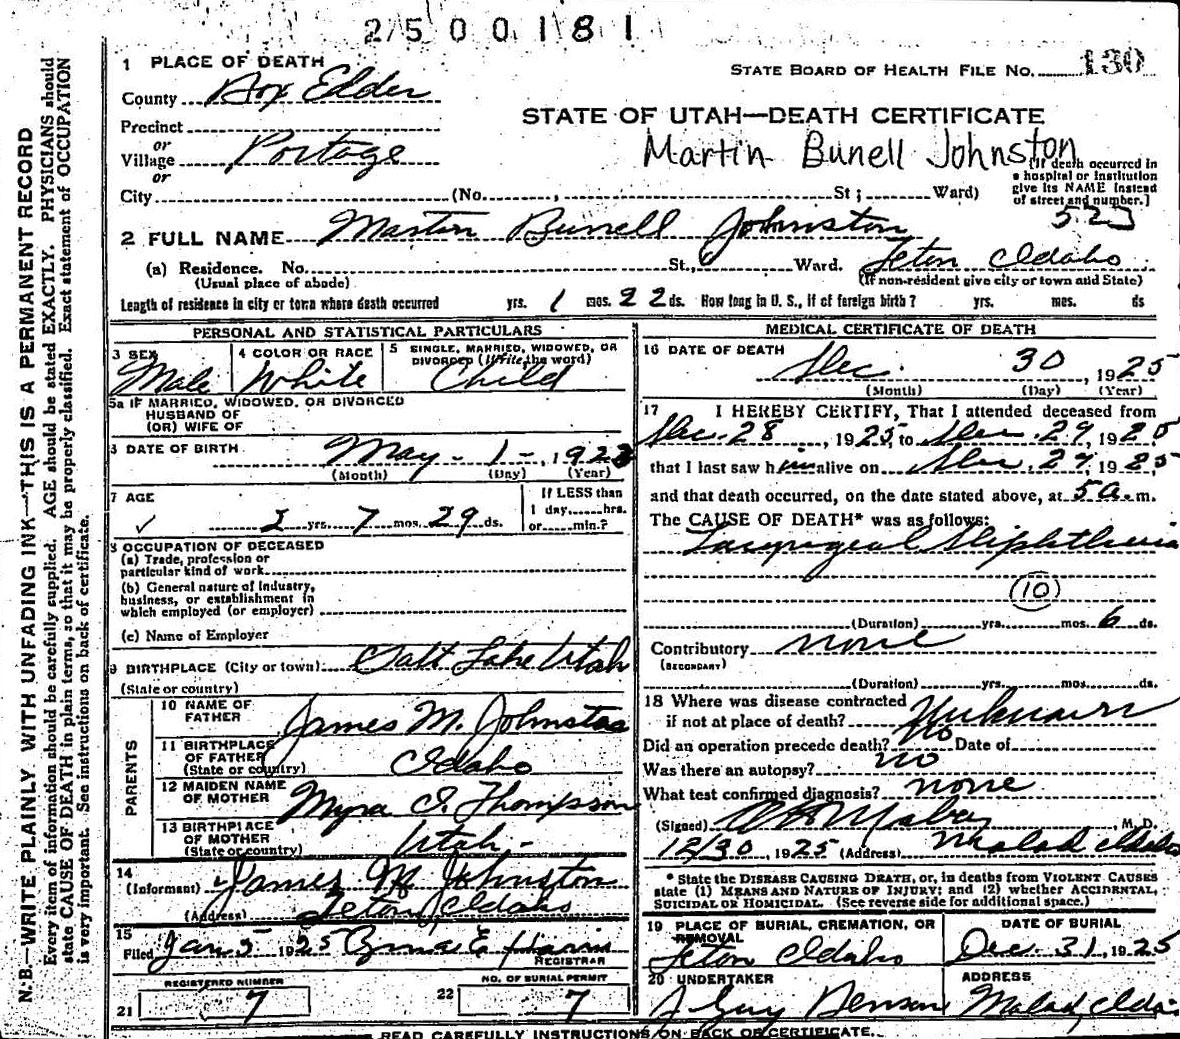 2500181
1 PLACE OF DEATH
STATE BOARD OF HEALTH FILE NO. 130
County Box Elder
STATE OF UTAH—DEATH CERTIFICATE
Precinct
or
Village Portage
Martin Bunell Johnston
or
City (No. , St; Ward)
(If death occurred in a hospital or institution give its NAME instead of street and number.)
523
2 FULL NAME Martin Bunell Johnston
(a) Residence. No. St., Ward. Teton Idaho
(Usual place of abode) (If non-resident give city or town and State)
Length of residence in city or town where death occurred yrs. 1 mos. 22 ds. How long in U. S., if of foreign birth? yrs. mos. ds
PERSONAL AND STATISTICAL PARTICULARS
3 SEX Male
4 COLOR OR RACE White
5 SINGLE, MARRIED, WIDOWED, OR DIVORCED (Write the word) Child
5a IF MARRIED, WIDOWED, OR DIVORCED
HUSBAND OF
(OR) WIFE OF
DATE OF BIRTH May - 1 -, 1923
(Month) (Day) (Year)
7 AGE
yrs. 7 mos. 29 ds.
If LESS than
1 day, hrs.
or min.?
8 OCCUPATION OF DECEASED
(a) Trade, profession or
particular kind of work
(b) General nature of industry,
business, or establishment in
which employed (or employer)
(c) Name of Employer
9 BIRTHPLACE (City or town) Salt Lake Utah
(State or country)
PARENTS
10 NAME OF FATHER James M. Johnston
11 BIRTHPLACE OF FATHER (State or country) Idaho
12 MAIDEN NAME OF MOTHER Myra I. Thompson
13 BIRTHPLACE OF MOTHER (State or country) Utah -
14
(Informant) James M Johnston
(Address) Teton, Idaho
15
Filed Jan 5 1925 E Harris
REGISTRAR
REGISTERED NUMBER
21 7
NO. OF BURIAL PERMIT
22 7
MEDICAL CERTIFICATE OF DEATH
16 DATE OF DEATH
Dec. 30, 1925
(Month) (Day) (Year)
17 I HEREBY CERTIFY, That I attended deceased from
Dec. 28, 1925, to Dec. 29, 1925
that I last saw him alive on Dec. 29, 1925
and that death occurred, on the date stated above, at 5 a. m.
The CAUSE OF DEATH* was as follows:
Laryngeal Diphtheria
(10)
(Duration) yrs. mos. 6 ds.
Contributory none
(SECONDARY)
(Duration) yrs. mos. ds.
18 Where was disease contracted
if not at place of death? Unknown
Did an operation precede death? No Date of
Was there an autopsy? no
What test confirmed diagnosis? none
(Signed) Mabey, M. D.
12/30, 1925 (Address) Malad Idaho
* State the DISEASE CAUSING DEATH, or, in deaths from VIOLENT CAUSES
state (1) MEANS AND NATURE OF INJURY; and (2) whether ACCIDENTAL,
SUICIDAL OR HOMICIDAL. (See reverse side for additional space.)
19 PLACE OF BURIAL, CREMATION, OR REMOVAL Teton Idaho
DATE OF BURIAL Dec. 31, 1925
20 UNDERTAKER Guy Benson
ADDRESS Malad, Idaho
READ CAREFULLY INSTRUCTIONS ON BACK OF CERTIFICATE.
N. B.—WRITE PLAINLY WITH UNFADING INK—THIS IS A PERMANENT RECORD
Every item of information should be carefully supplied. AGE should be stated EXACTLY. PHYSICIANS should
state CAUSE OF DEATH in plain terms, so that it may be properly classified. Exact statement of OCCUPATION
is very important. See instructions on back of certificate.